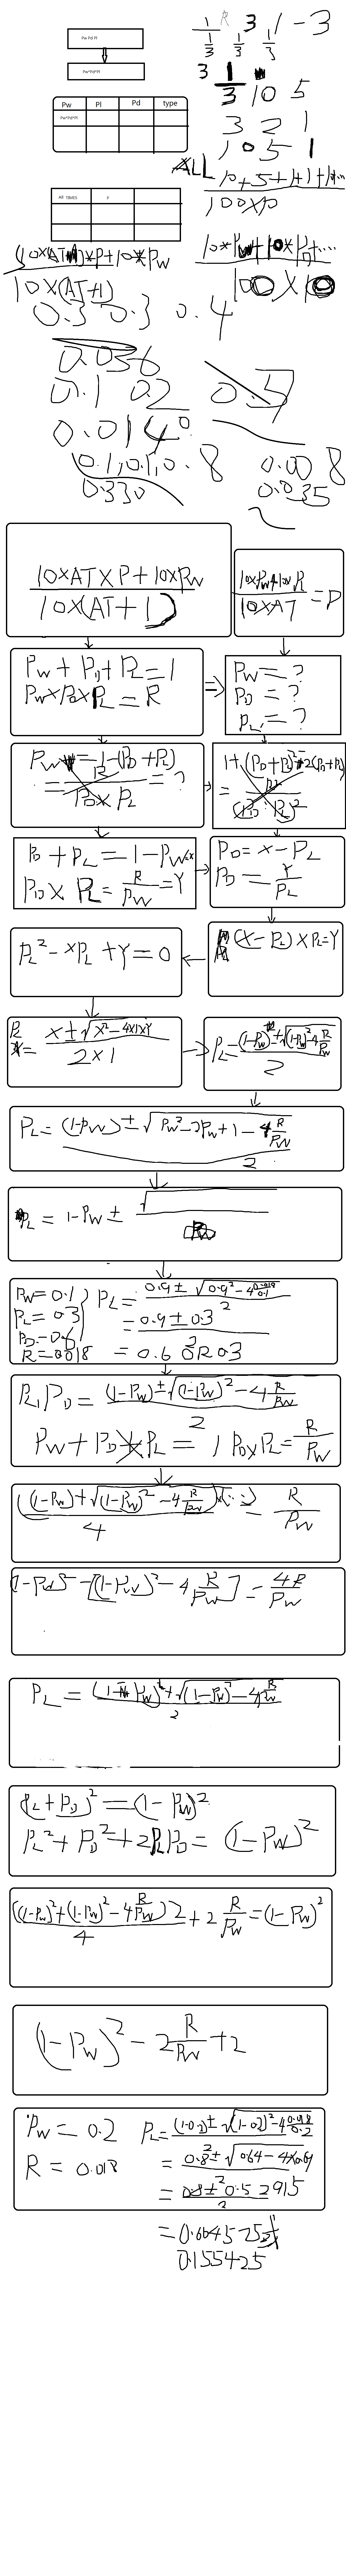 Pw Pd Pl
Pw*Pd*Pl
Pw Pl Pd type
Pw*Pd*Pl
All TIMES P
1 R 3 1-3
1/3 1/3 1/3
3 1/3 10 5
3 2 1
10 5 1
ALL
10+5+1+1+1+...
100x10
10*Pw+10*PD+....
100x10
10x(AT+1)
0.3 0.3 0.4
0.036
0.1 0.2 0.7
0.014
0.1,0.1,0.8 0.008
0.330 0.035
10xATxP+10xPw
10x(AT+1)
10xPw+10xPL
10xAT
=P
Pw+PD+PL=1
PwxPDxPL=R
=>
Pw=?
PD=?
PL=?
Pw=1-(PD+PL)
=R/(PDxPL)=?
PD+PL=1-Pw=x
PDxPL=R/Pw=Y
PD=x-PL
PD=Y/PL
(x-PL)xPL=Y
PL²-xPL+Y=0
PL=(x±√(x²-4x1xY))/(2x1)
PL=((1-Pw)±√((1-Pw)²-4R/Pw))/2
PL=((1-Pw)±√(Pw²-2Pw+1-4R/Pw))/2
PL=1-Pw±√
Pw=0.1
PL=0.3
PD=0.6
R=0.018
PL=(0.9±√(0.9²-4 0.018/0.1))/2
=(0.9±0.3)/2
=0.6 OR 0.3
PL,PD=((1-Pw)±√((1-Pw)²-4R/Pw))/2
, PDxPL=R/Pw
((1-Pw)+√((1-Pw)²-4R/Pw))(...)/4=R/Pw
(1-Pw)²-[(1-Pw)²-4R/Pw]=4R/Pw
PL=((1-Pw)+√((1-Pw)²-4R/Pw))/2
(PL+PD)²=(1-Pw)²
PL²+PD²+2PLPD=(1-Pw)²
((1-Pw)²+(1-Pw)²-4R/Pw)2/4+2R/Pw=(1-Pw)²
(1-Pw)²-2R/Pw+2
Pw=0.2
R=0.018
PL=((1-0.2)±√((1-0.2)²-4 0.018/0.2))/2
=(0.8±√(0.64-4x0.09))/2
=(0.8±0.52915)/2
=0.664575
0.155425